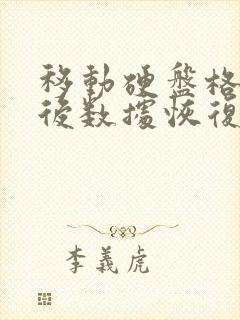 移動硬盤格
後数據恢復
李義虎